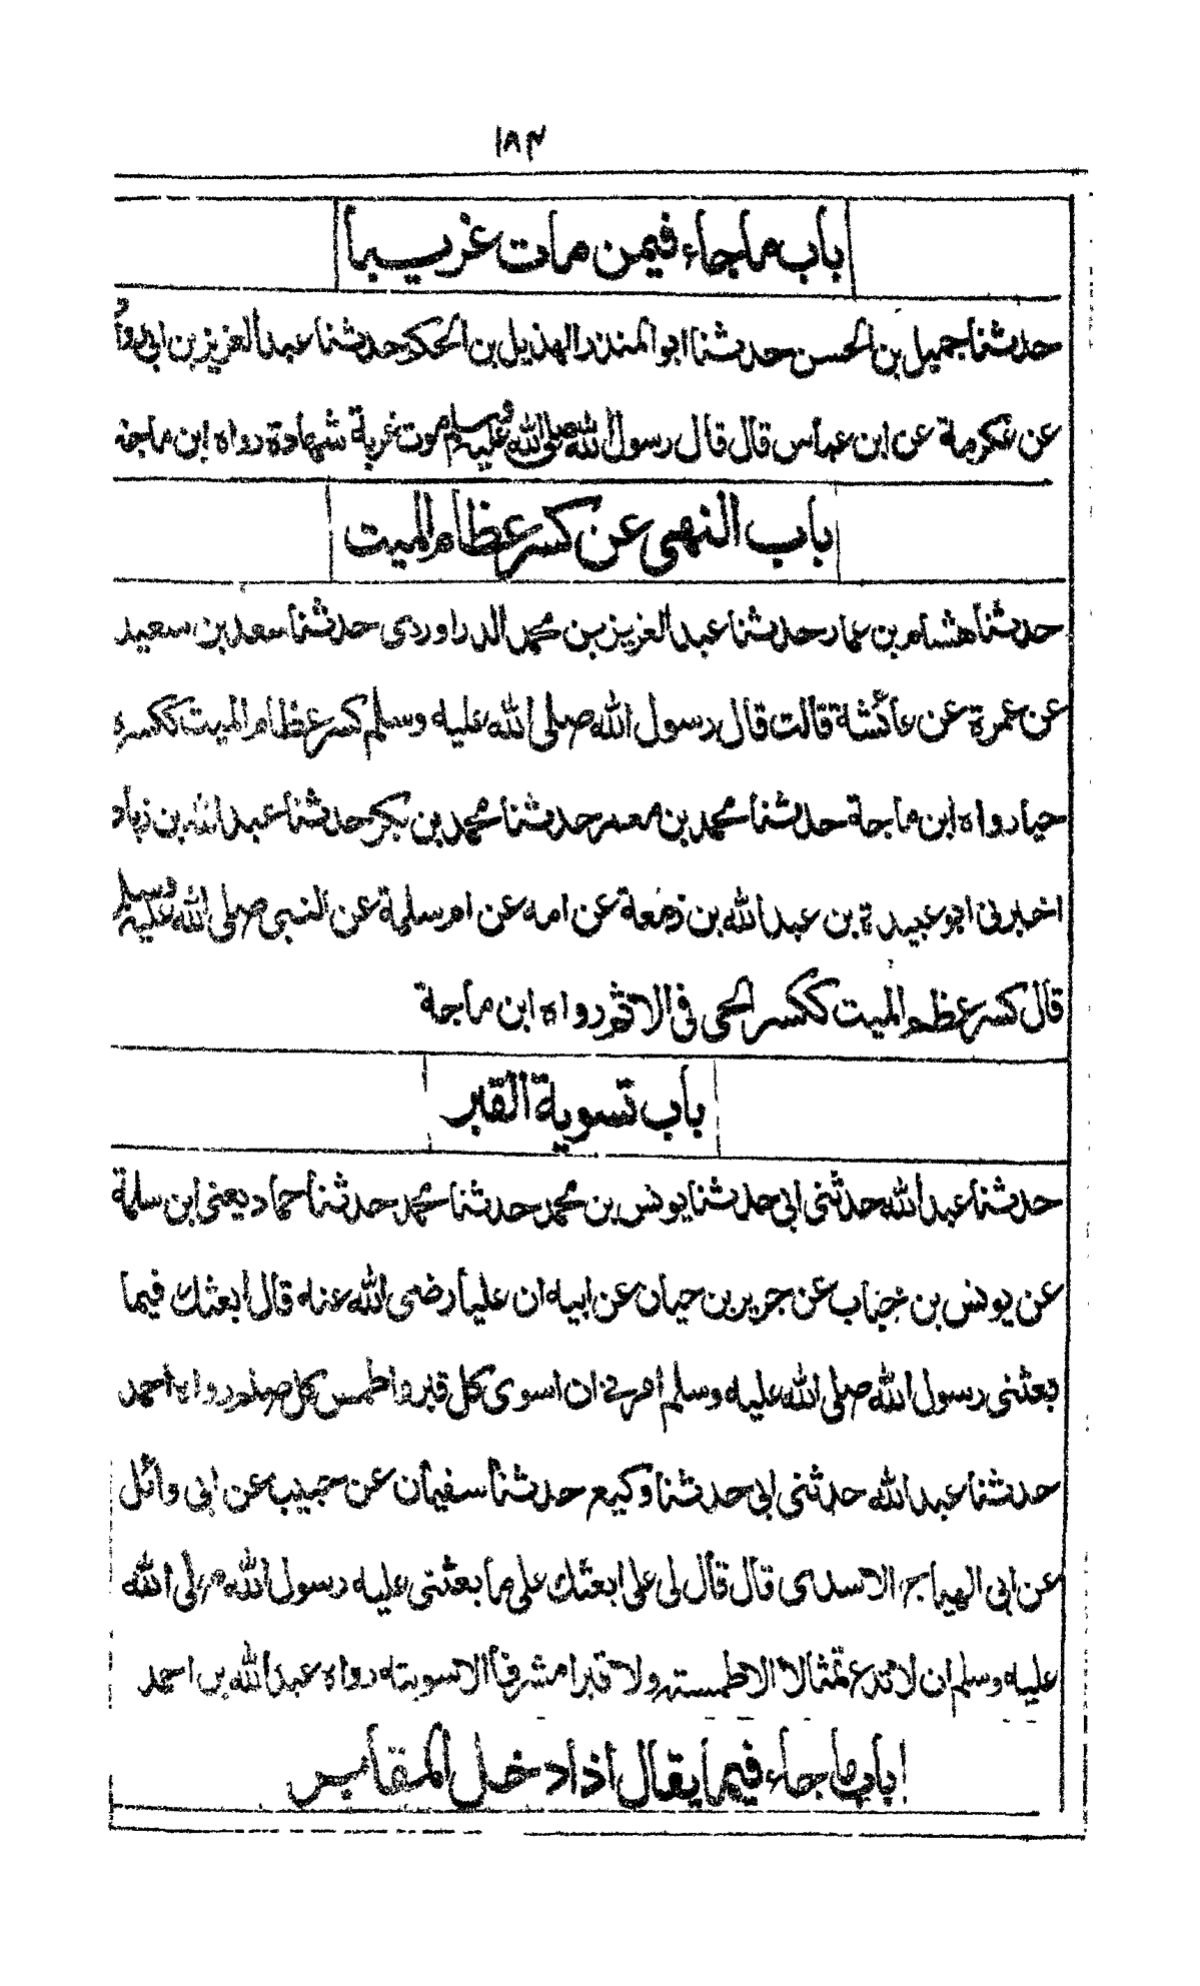 ١٨٣
باب ماجاء فيمن مات غريبا
حدثنا جميل بن الحسن حدثنا ابو المنذر الهذيل بن الحكم حدثنا عبد العزيز بن ابي رواد
عن عكرمة عن ابن عباس قال قال رسول الله صلى الله عليه وسلم موت غربة شهادة رواه ابن ماجة
باب النهى عن كسر عظام الميت
حدثنا هشام بن عمار حدثنا عبد العزيز بن محمد الدراوردى حدثنا سعد بن سعيد
عن عمرة عن عائشة قالت قال رسول الله صلى الله عليه وسلم كسر عظام الميت ككسره
حيا رواه ابن ماجة حدثنا محمد بن معمر حدثنا محمد بن بكر حدثنا عبد الله بن زياد
اخبرنى ابو عبيدة بن عبد الله بن زمعة عن امه عن ام سلمة عن النبى صلى الله عليه وسلم
قال كسر عظم الميت ككسر الحى فى الاثم رواه ابن ماجة
باب تسوية القبر
حدثنا عبد الله حدثنى ابى حدثنا يونس بن محمد حدثنا محمد حدثنا حماد يعنى ابن سلمة
عن يونس بن خباب عن جرير بن حيان عن ابيه ان عليا رضى الله عنه قال أبعثك فيما
بعثنى رسول الله صلى الله عليه وسلم امرنى ان اسوى كل قبر واطمس كل صنم رواه احمد
حدثنا عبد الله حدثنى ابى حدثنا وكيع حدثنا سفيان عن حبيب عن ابى وائل
عن ابى الهياج الاسدى قال قال لى على ابعثك على ما بعثنى عليه رسول الله صلى الله
عليه وسلم ان لا تدع تمثالا الا طمسته ولا قبرا مشرفا الا سويته رواه عبد الله بن احمد
باب ماجاء فيما يقال اذا دخل المقابر